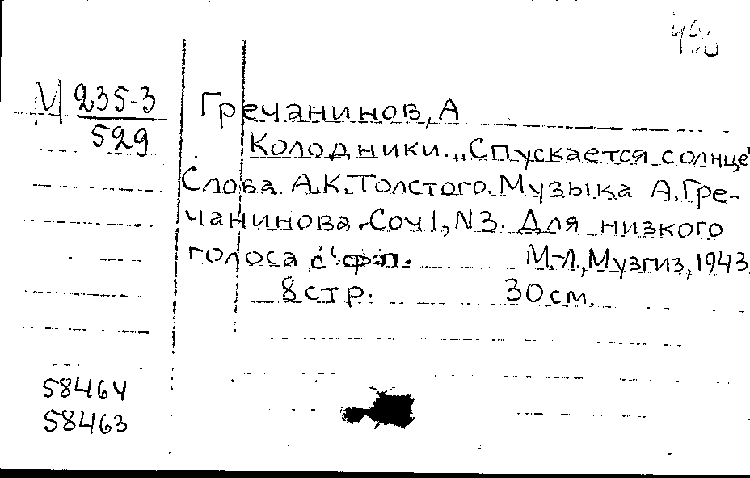 М 235-3
529
Гречанинов, А
Колодники. „Спускается солнце"
Слова А.К.Толстого. Музыка А.Гре-
чанинова. Соч 1, N3. Для низкого
голоса с ф-п. М-Л., Музгиз, 1943
8 стр. 30 см.
58464
58463